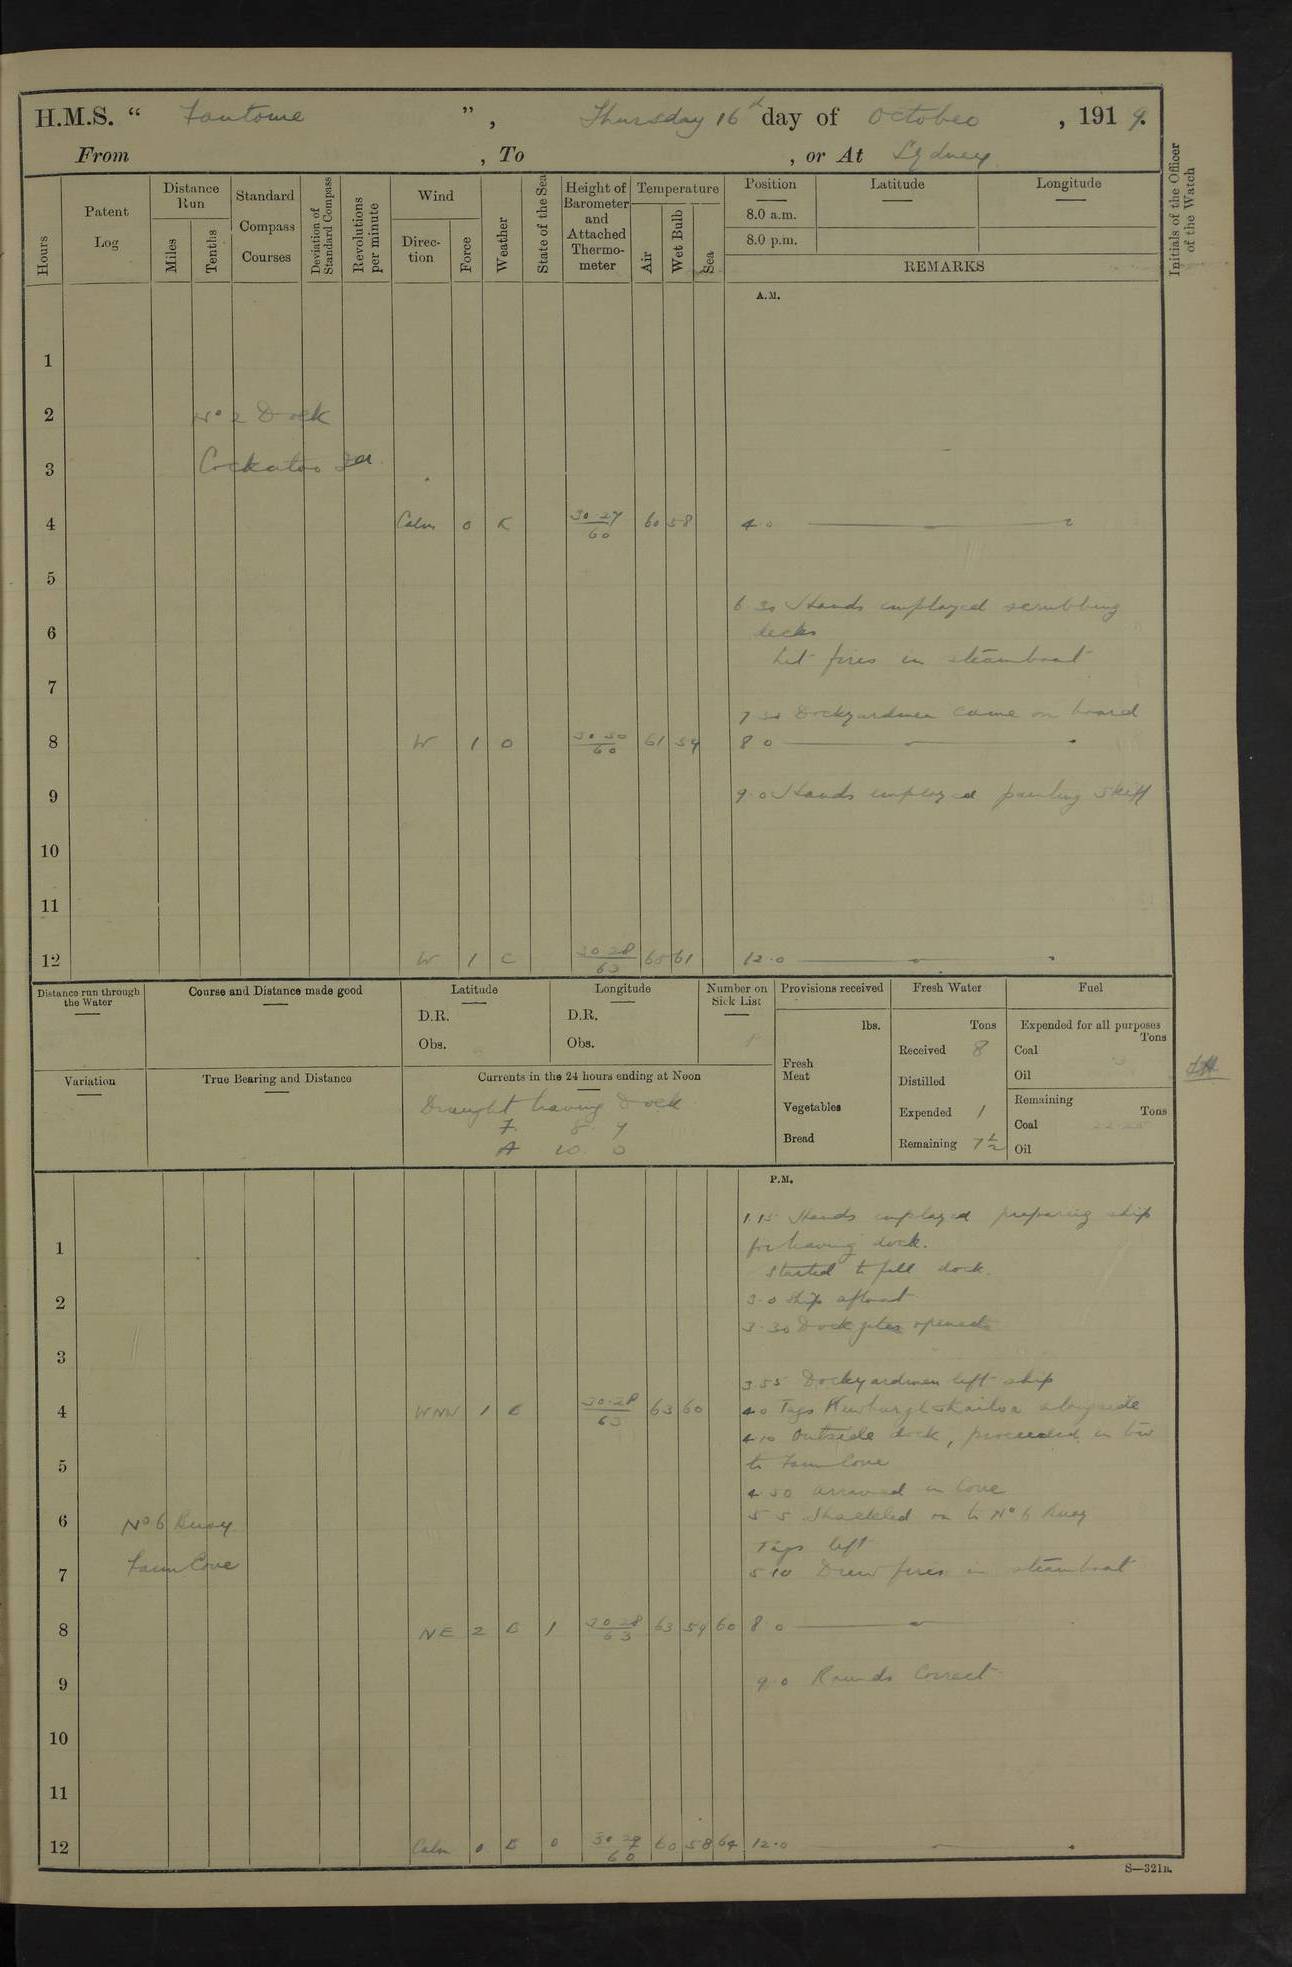 H.M.S. “ Fantome ”, Thursday 16th day of October, 1919.
From , To , or At Sydney
Hours
Patent Log
Distance Run
Miles
Tenths
Standard Compass Courses
Deviation of Standard Compass
Revolutions per minute
Wind
Direction
Force
Weather
State of the Sea
Height of Barometer and Attached Thermometer
Temperature
Air
Wet Bulb
Sea
Position
8.0 a.m.
8.0 p.m.
Latitude
Longitude
REMARKS
Initials of the Officer of the Watch
A.M.
1
2 No 2 Dock
3 Cockatoo Id
4 Calm 0 30.27 60 60 58 4.0
5
6.30 Hands employed scrubbing
6 decks
Lit fires in steamboat
7
7.30 Dockyardmen came on board
8 W 1 O 30.30 60 61 59 8.0
9 9.0 Hands employed painting skiff
10
11
12 W 1 C 30.28 63 65 61 12.0
Distance run through the Water
Course and Distance made good
Latitude
D.R.
Obs.
Longitude
D.R.
Obs.
Number on Sick List
Provisions received
lbs.
Fresh Meat
Vegetables
Bread
Fresh Water
Tons
Received 8
Distilled
Expended 1
Remaining 7½
Fuel
Expended for all purposes
Tons
Coal
Oil
Remaining
Tons
Coal
Oil
Variation
True Bearing and Distance
Currents in the 24 hours ending at Noon
Draught leaving Dock
F. 8. 9
A 10. 0
P.M.
1.15 Hands employed preparing ship
1 for leaving dock.
Started to fill dock.
2 3.0 Ship afloat
3.30 Dock gates opened
3
3.55 Dockyardmen left ship
4 WNW 1 30.28 63 63 60 4.0 Tugs alongside
4.10 Outside dock, proceeded in tow
5 to Farm Cove
4.50 Arrived in Cove
6 No 6 Buoy 5.5 Shackled on to No 6 Buoy
Tugs left
7 Farm Cove 5.10 Drew fires in steamboat
8 NE 2 1 30.28 63 63 59 60 8.0
9 9.0 Rounds Correct
10
11
12 Calm 0 0 30.27 60 60 58 64 12.0
S—321B.